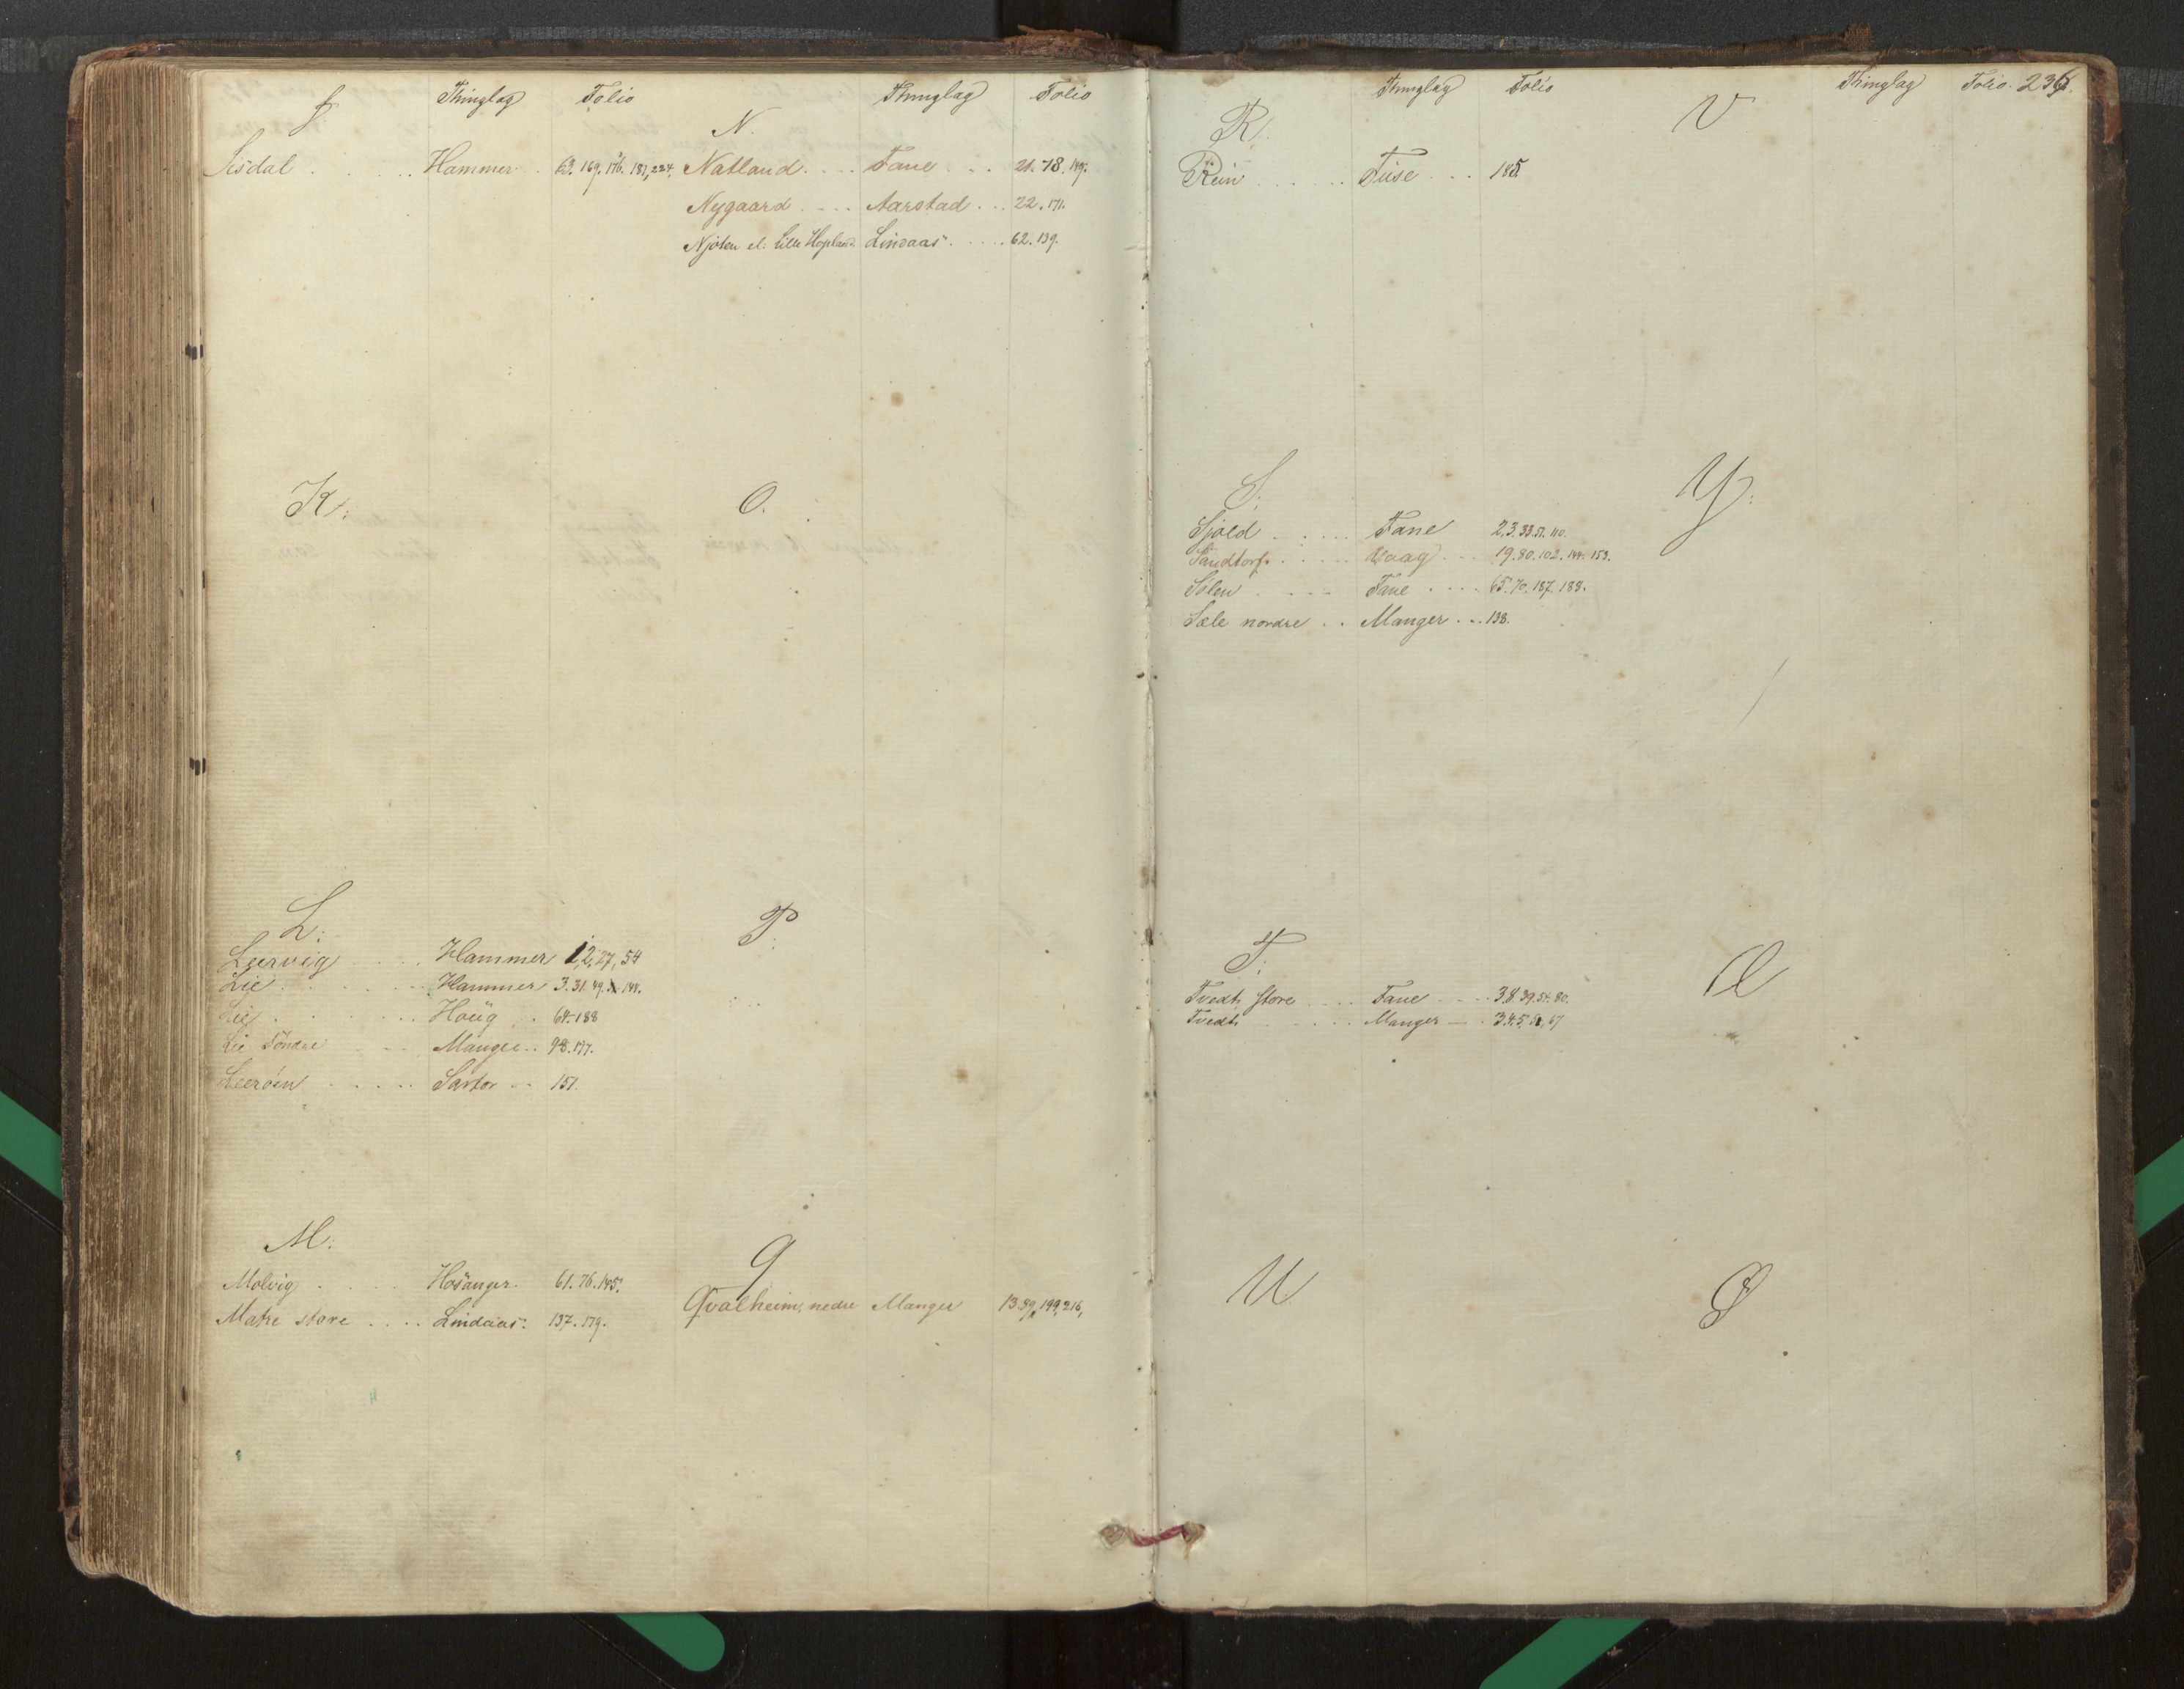 J. Thinglag Folio
Isdal Hammer 63. 169. 176. 181, 224.
K.
L.
Leervig Hammer 1, 2, 27, 54
Lie Hammer 3. 31. 49.
Lie Houg 64. 188
Lie Söndre Manger 98. 177.
Leeröen Sartor 151.
M.
Molvig Hosanger. 61. 76. 145.
Matre store Lindaas. 137. 179.
N. Thinglag Folio
Natland Fane 21. 78. 149.
Nygaard Aarstad 22. 171.
Njöten el. Lille Hopland Lindaas 62. 139.
O.
P.
Q
Qvalheim, nedre Manger 13. 89, 199, 216,
R. Thinglag Folio
Rein Fuse 185.
S.
Sjöld Fane 2, 3. 33. 51. 110.
Sandtorf Haag 19. 80. 102. 144. 153.
Sölen Fane 65. 70. 187. 188.
Sæle nordre Manger 138.
T.
Tvedt, store Fane 38. 39. 54. 80.
Tvedt Manger 67
U
V Thinglag Folio. 236.
Y.
Æ
Ø